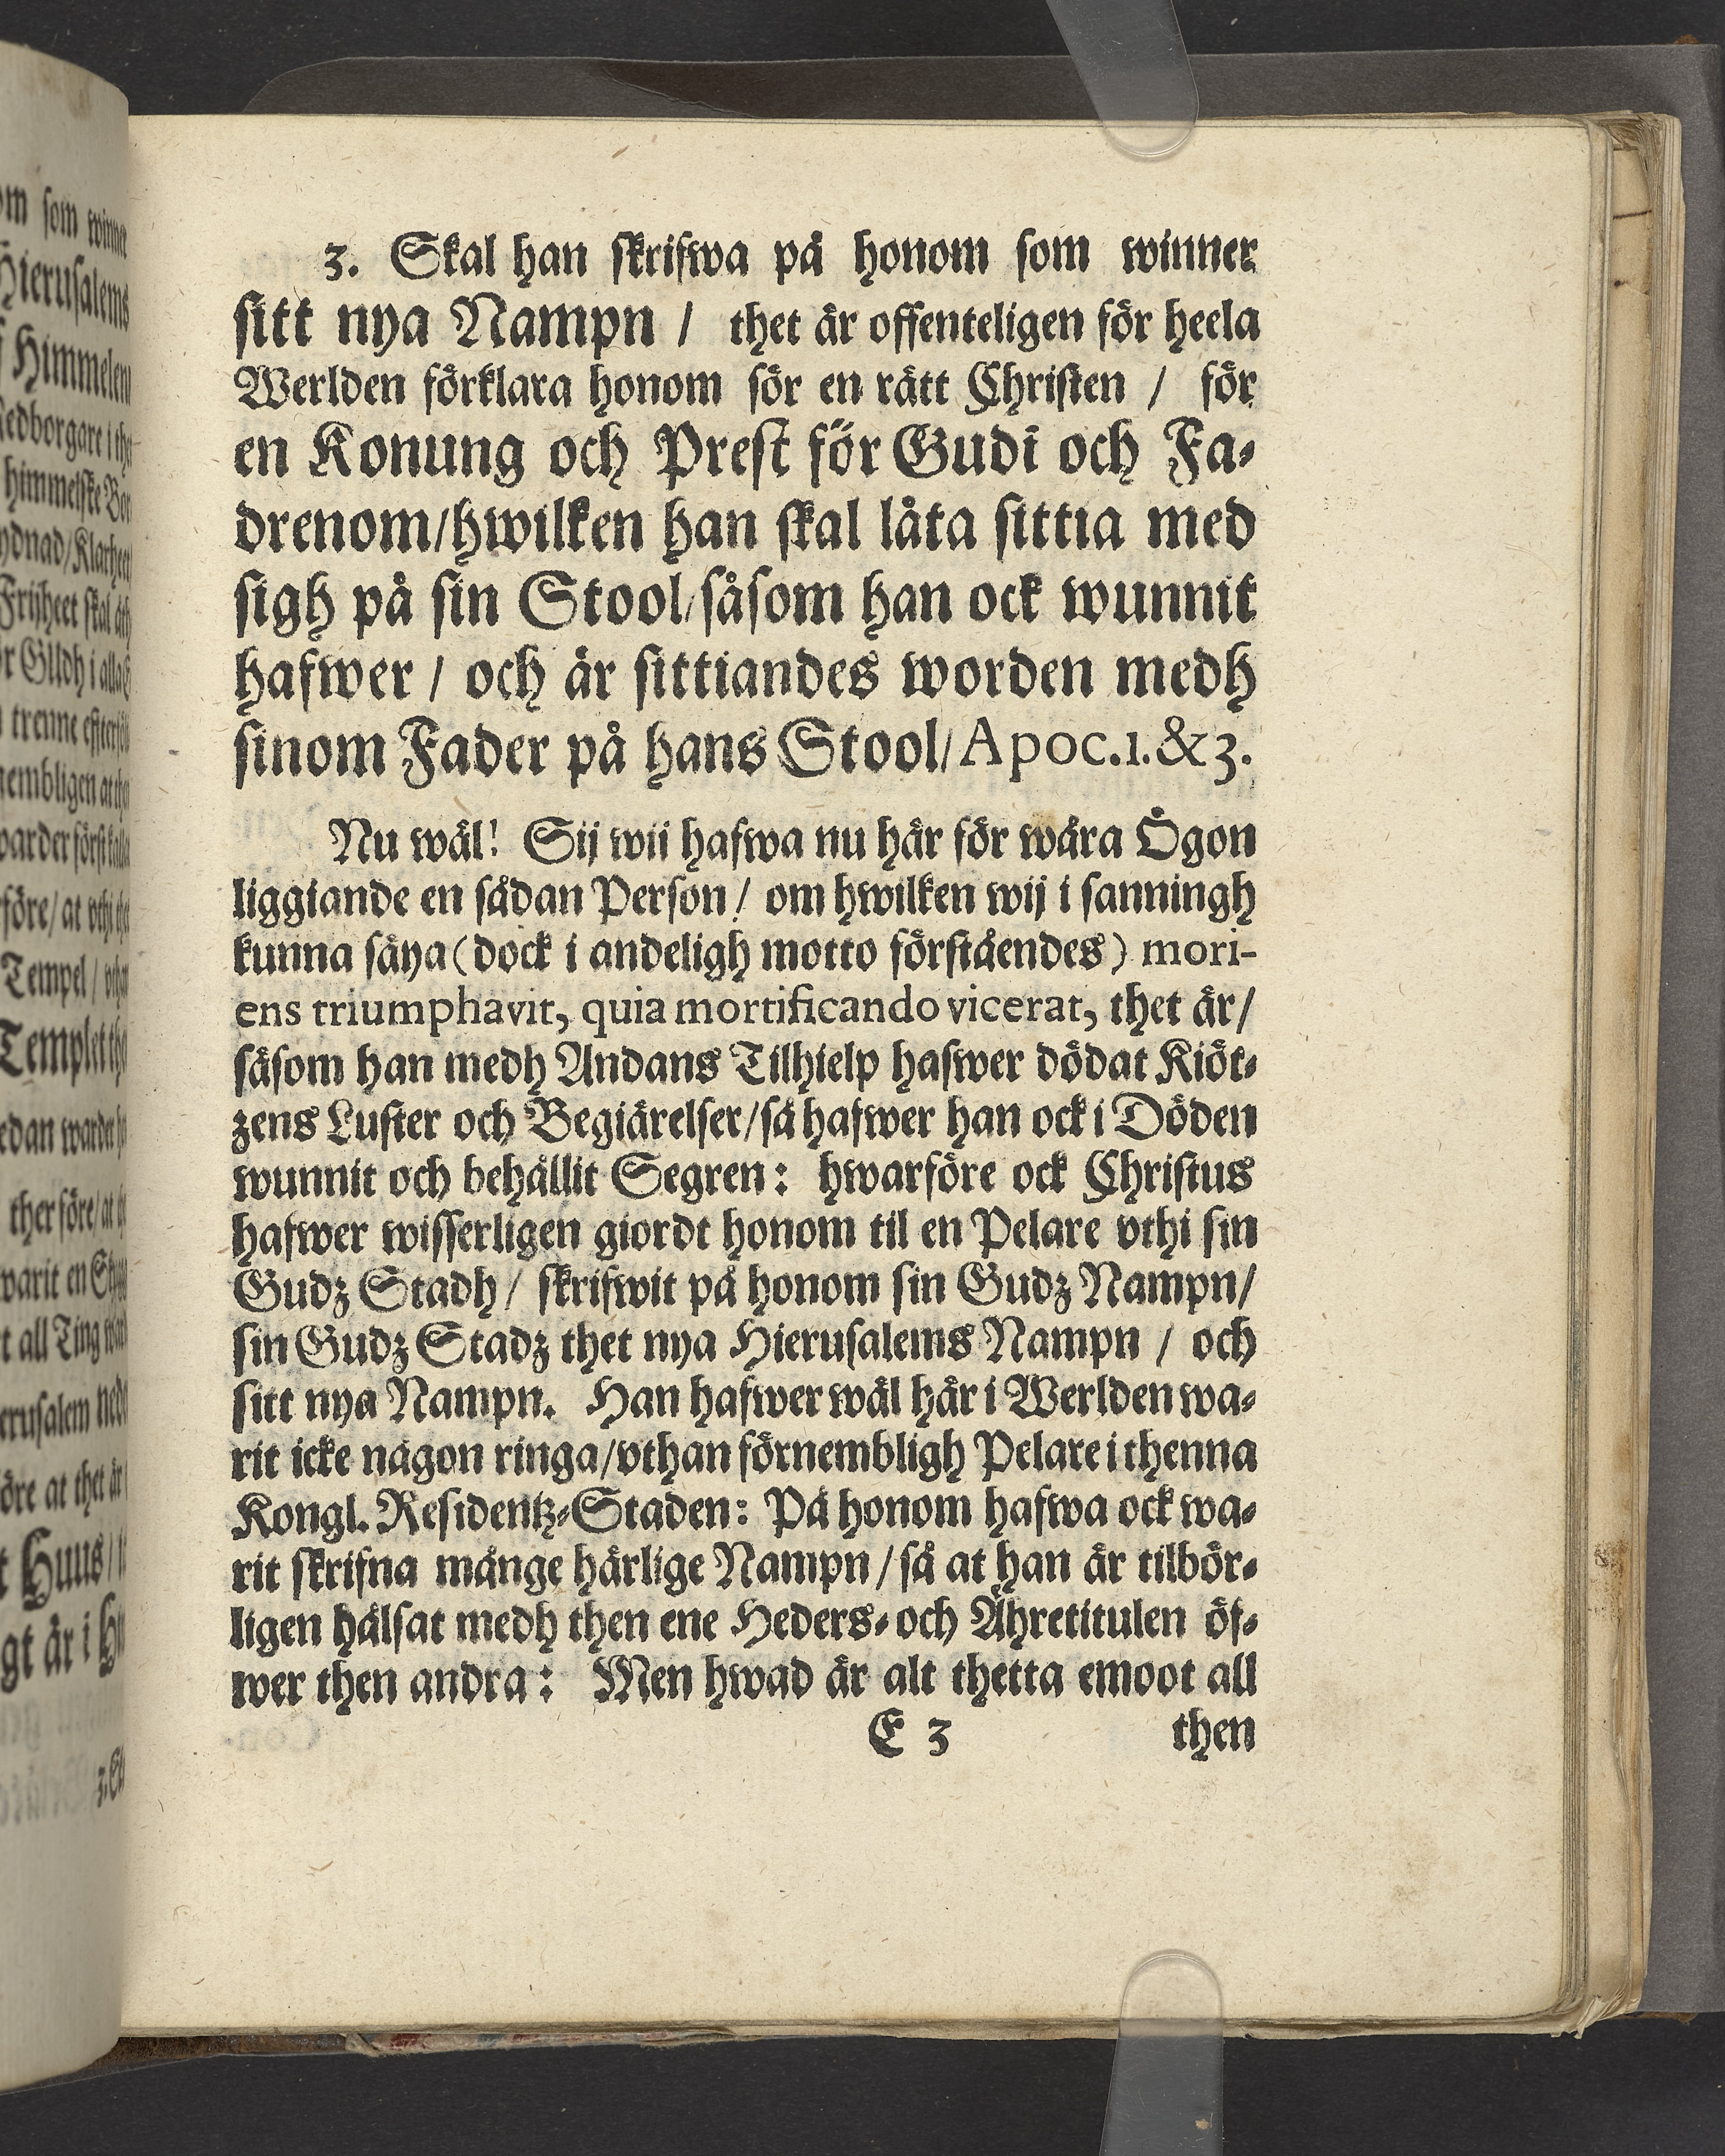 3. Skal han skrifwa på honom som winner
sitt nya Nampn / thet är offenteligen för heela
Werlden förklara honom för en rätt Christen / för
en Konung och Prest för Gudi och Fa-
drenom/hwilken han skal låta sittia med
sigh på sin Stool/såsom han ock wunnit
hafwer / och är sittiandes worden medh
sinom Fader på hans Stool/Apoc.1.&3.
Nu wäl! Sij wii hafwa nu här för wåra Ögon
liggiande en sådan Person/ om hwilken wij i sanningh
kunna säya (dock i andeligh motto förståendes) mori-
ens triumphavit, quia mortificando vicerat, thet är/
såsom han medh Andans Tilhielp hafwer dödat Kiöt-
zens Luster och Begiärelser/så hafwer han ock i Döden
wunnit och behållit Segren: hwarföre ock Christus
hafwer wisserligen giordt honom til en Pelare vthi sin
Gudz Stadh / skrifwit på honom sin Gudz Nampn/
sin Gudz Stadz thet nya Hierusalems Nampn / och
sitt nya Nampn. Han hafwer wäl här i Werlden wa-
rit icke någon ringa/vthan förnembligh Pelare i thenna
Kongl. Residentz-Staden: På honom hafwa ock wa-
rit skrifna månge härlige Nampn/så at han är tilbör-
ligen hälsat medh then ene Heders- och Ähretitulen öf-
wer then andra: Men hwad är alt thetta emoot all
E 3 then